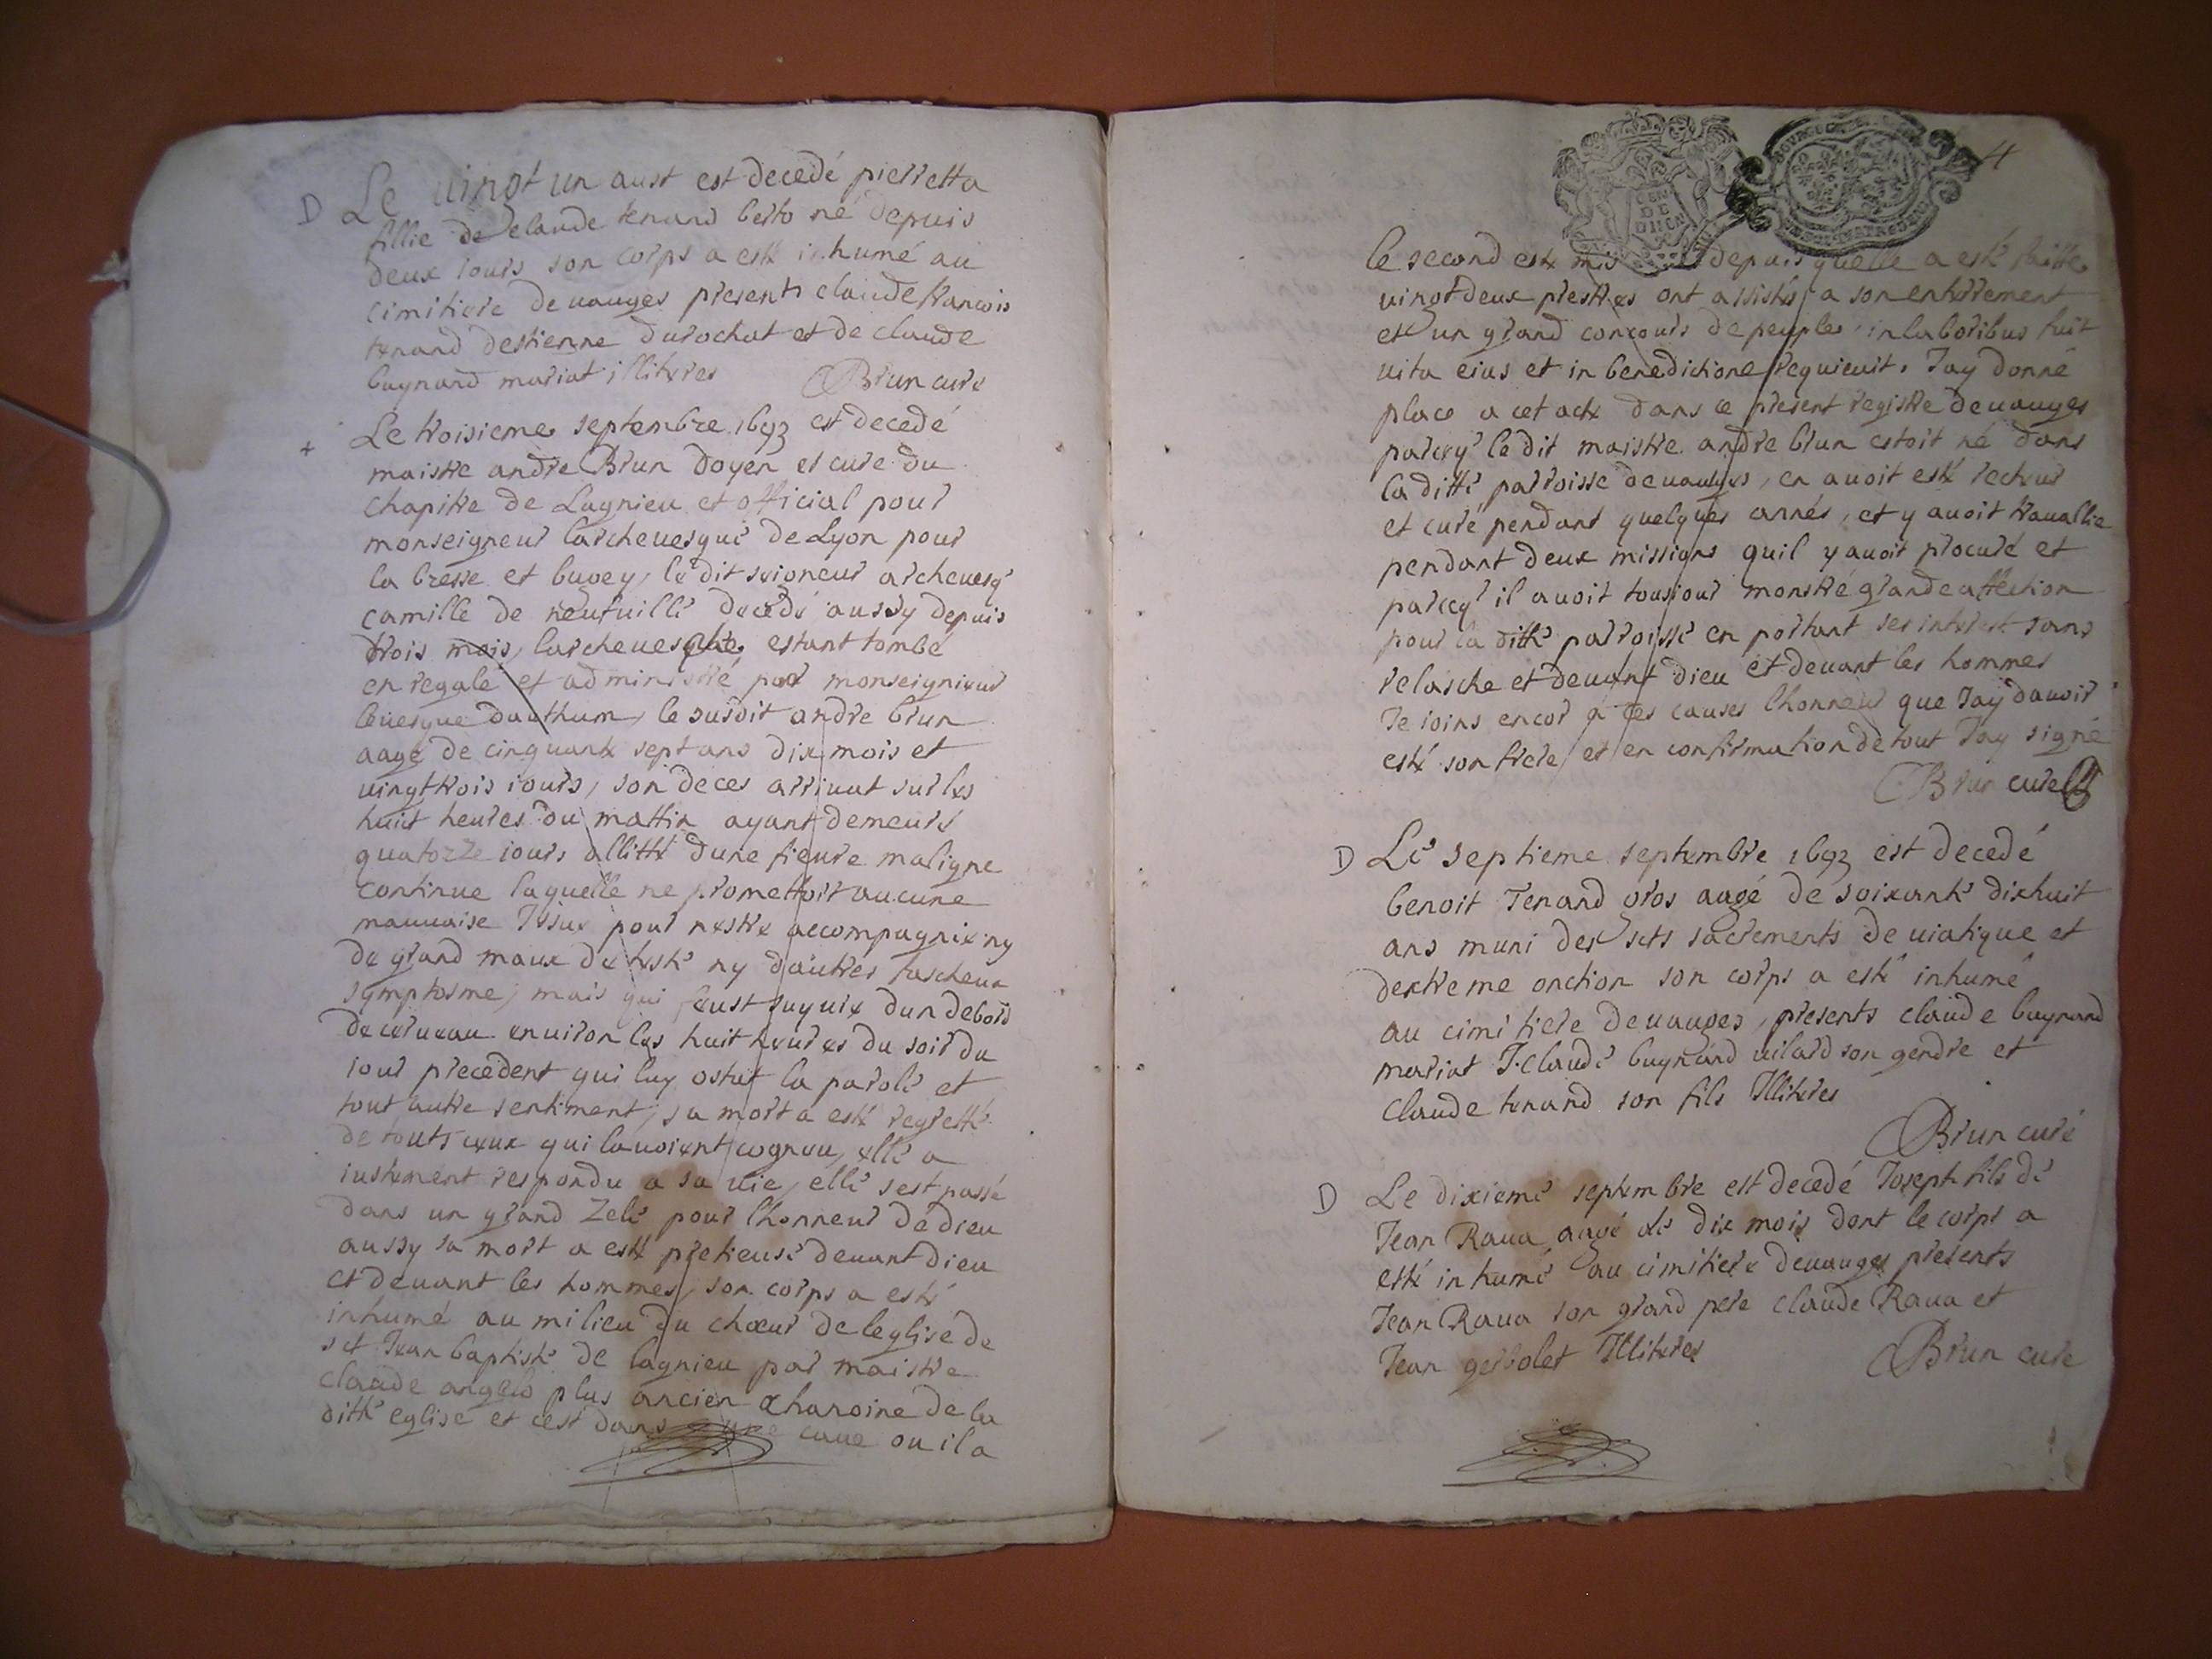 D Le vingt un aust est decedé pierretta
fillie de claude tenand berto né depuis
deux iours son corps a esté inhumé au
cimitiere de uauges presents claude francois
tenand destienne durochat et de claude
bugnand mariat illiteres Brun curé
+ Le troisieme septembre 1693 est decedé
maistre andre Brun doyen et curé du
chapitre de Lagnieu et official pour
monseigneur larcheuesque de Lyon pour
la bresse et bugey, le dit seigneur archeuesq
camille de neufuille decedé aussy depuis
trois mois, larcheuesché estant tombé
en regale et administré par monseignieur
leuesque dauthum, le susdit andre brun
aagé de cinquante sept ans dix mois et
uingt trois iours, son deces arriuat sur les
huit heures du mattin ayant demeuré
quatorze iours allitté dune fieure maligne
continue laquelle ne promettoit aucune
mauuaise Issue pour nestre accompagniée ny
de grand maux de teste ny dautres fascheux
symptosme, mais qui feust suyuie dun debord
de cerueau enuiron les huit heures du soir du
iour precedent qui luy ostat la parole et
tout autre sentiment, sa mort a esté regretté
de touts ceux qui lauoient cogneu, elle a
iustement respondu a sa uie, elle sest passé
dans un grand Zele pour lhonneur de dieu
aussy sa mort a esté pretieuse deuant dieu
et deuant les hommes, son corps a esté
inhumé au milieu du chœur de leglise de
st Jean baptiste de lagnieu par maistre
claude angelo plus ancien chanoine de la
ditte eglise et cest dans une caue ou il a
4
le second esté mis depuis quelle a esté faitte
uingt deux prestres ont assistés a son enterrement
et un grand concours de peuple, in laboribus fuit
uita eius et in benedictione requieuit. Jay donné
place a cet acte dans ce present registre de uauges
parcq le dit maistre andre brun estoit né dans
la ditte parroisse de uauges, en auoit esté recteur
et curé pendant quelques annés, et y auoit trauallie
pendant deux missions quil y auoit procuré et
parcq il auoit tousiour monstré grande affection
pour la ditte parroisse en portant ses interest sans
relasche et deuant dieu et deuant les hommes
Je ioins encor a ces causes lhonneur que Jay dauoir
esté son frere et en confirmation de tout Jay signé
Brun curé
D Le septieme septembre 1693 est decedé
benoit Tenand gros aagé de soixante dixhuit
ans muni des sts sacrements de uiatique et
dextreme onction son corps a esté inhumé
au cimitiere de uauges, presents claude bugnand
mariat J. claude bugnand uilard son gendre et
claude tenand son fils Illiteres
Brun curé
D Le dixieme septembre est decedé Joseph fils de
Jean Raua aagé de dix mois dont le corps a
esté inhumé au cimitiere de uauges presents
Jean Raua son grand pere claude Raua et
Jean gerbolet Illiteres Brun curé